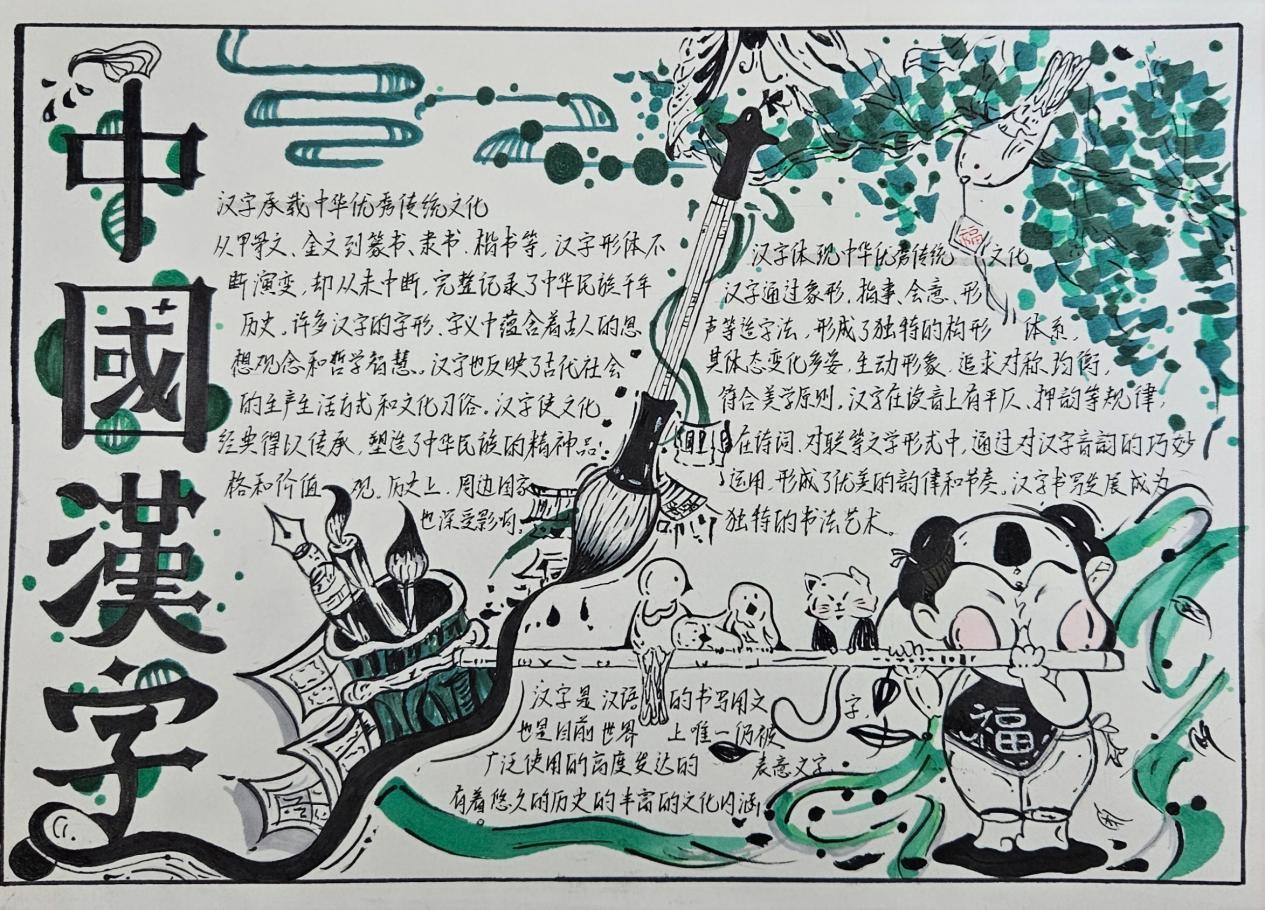 中國漢字
汉字承载中华优秀传统文化
从甲骨文、金文到篆书、隶书、楷书等,汉字形体不
断演变,却从未中断,完整记录了中华民族千年
历史,许多汉字的字形、字义中蕴含着古人的思
想观念和哲学智慧。汉字也反映了古代社会
的生产生活方式和文化习俗。汉字使文化
经典得以传承,塑造了中华民族的精神品
格和价值观,历史上,周边国家
也深受影响
汉字体现中华优秀传统文化
汉字通过象形、指事、会意、形
声等造字法,形成了独特的构形体系,
其体态变化多姿,生动形象,追求对称均衡,
符合美学原则。汉字在读音上有平仄、押韵等规律,
在诗词、对联等文学形式中,通过对汉字音韵的巧妙
运用,形成了优美的韵律和节奏。汉字书写发展成为
独特的书法艺术。
福
汉字是汉语的书写用文字,
也是目前世界上唯一仍被
广泛使用的高度发达的表意文字,
有着悠久的历史的丰富的文化内涵。
福